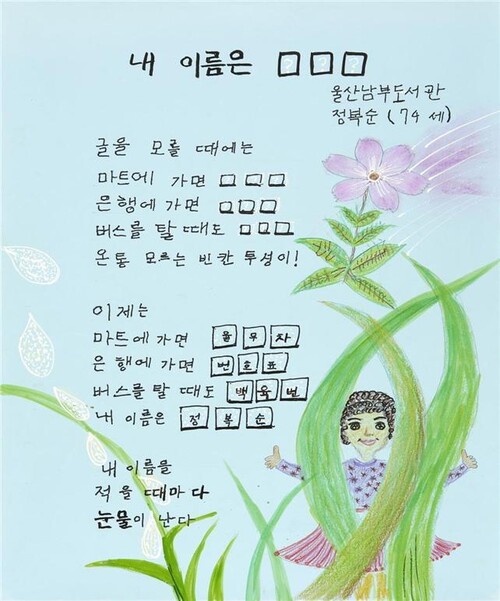 내 이름은 ? ? ?
울산남부도서관
정복순 (74세)
글을 모를 때에는
마트에 가면 □□□
은행에 가면 □□□
버스를 탈 때도 □□□
온통 모르는 빈칸 투성이!
이제는
마트에 가면 율무차
은행에 가면 번호표
버스를 탈 때도 백육번
내 이름은 정복순
내 이름을
적을 때마다
눈물이 난다